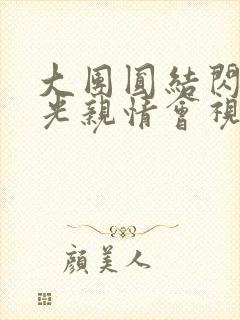 大團圓結閃
光親情會視
顏美人